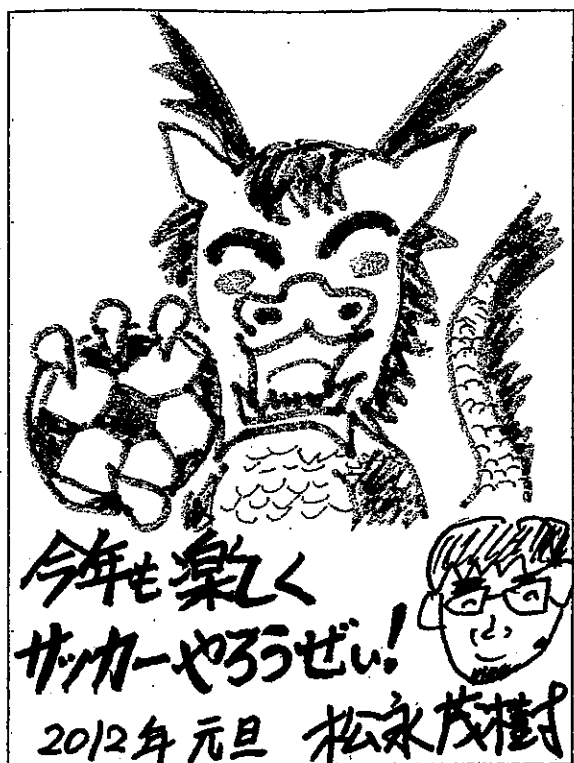 今年も楽しく
サッカーやろうぜぃ!
2012年 元旦 松永茂樹